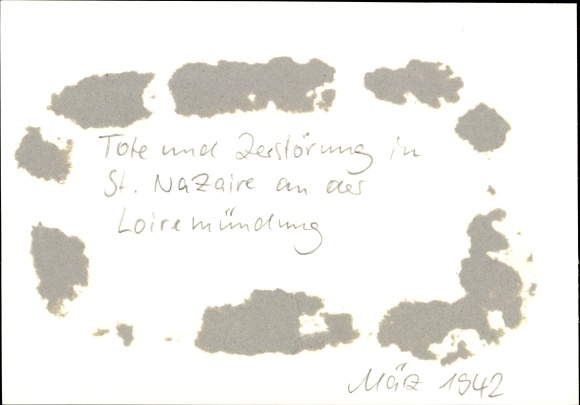 Tote und Zerstörung in
St. Nazaire an der
Loiremündung
März 1942